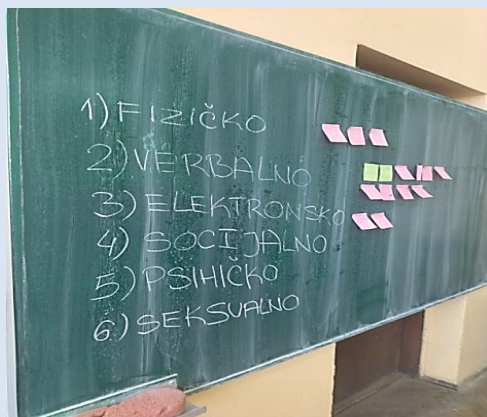 1) FIZIČKO
2) VERBALNO
3) ELEKTRONSKO
4) SOCIJALNO
5) PSIHIČKO
6) SEKSUALNO